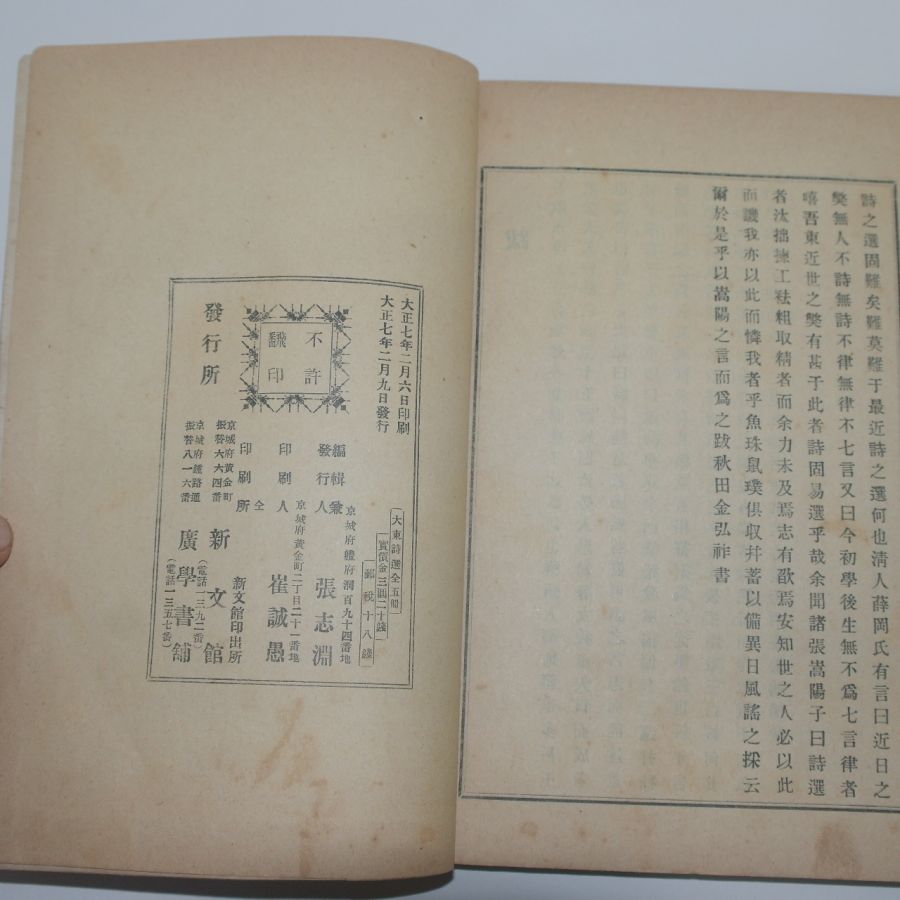 詩之選固難矣難莫難于最近詩之選何也淸人薛岡氏有言曰近日之
獘無人不詩無詩不律無律不七言又曰今初學後生無不爲七言律者
嘻吾東近世之獘有甚于此者詩固易選乎哉余聞諸張嵩陽子曰詩選
者汰拙揀工祛粗取精者而余力未及焉志有欿焉安知世之人必以此
而譏我亦以此而憐我者乎魚珠鼠璞俱収幷蓄以備異日風謠之採云
爾於是乎以嵩陽之言而爲之跋秋田金弘祚書
大正七年二月六日印刷
大正七年二月九日發行
不許
飜印
大東詩選全五冊
實價金三圓二十錢
郵稅十八錢
京城府 洞百九十四番地
編輯兼
發行人 張志淵
京城府黃金町二丁目二十一番地
印刷人 崔誠愚
仝
印刷所 新文館印出所
發行所
京城府黃金町
振替六六四番
新文館
(電話一三九二番)
京城府鐘路通
振替八一六番
廣學書舖
(電話一三五七番)